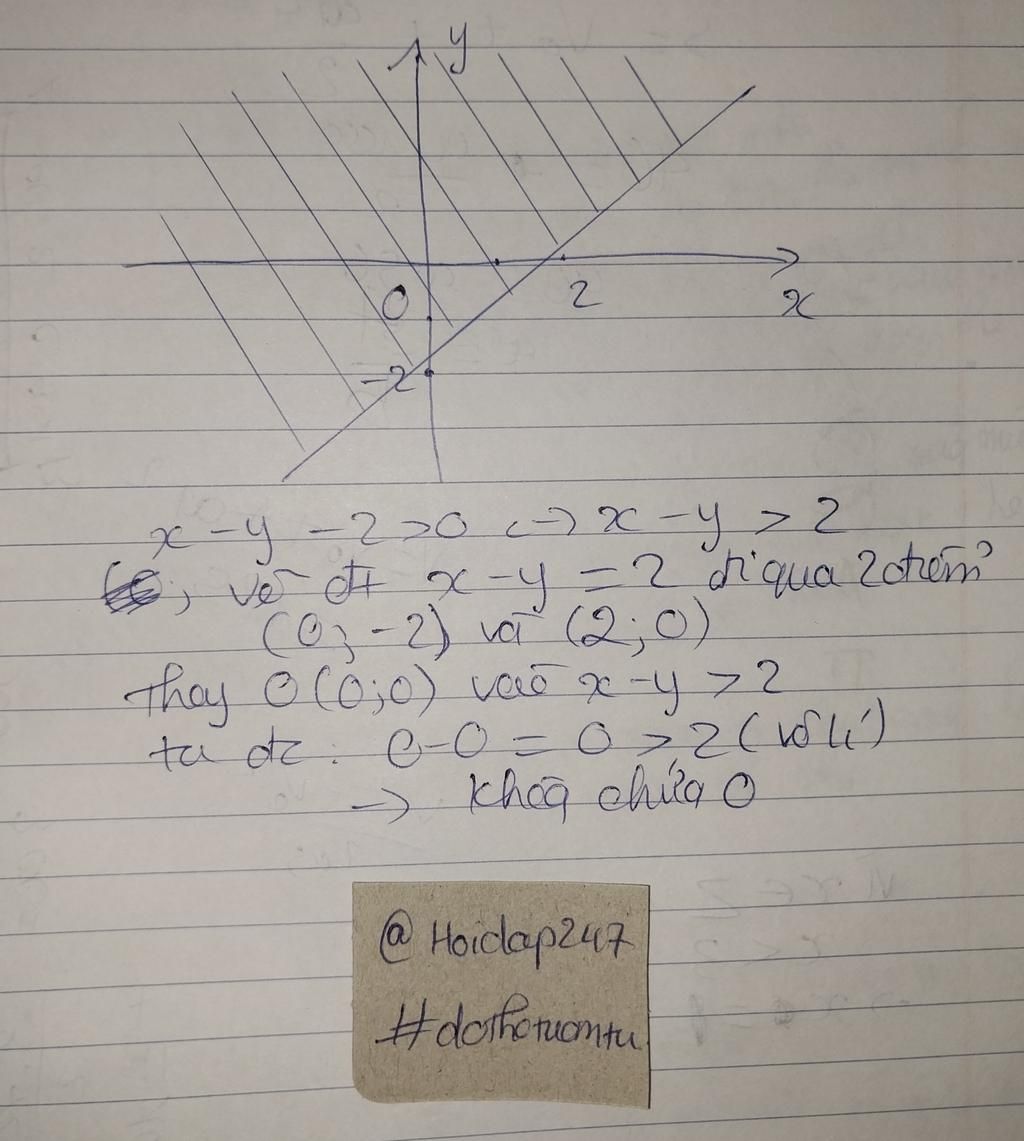 y
0
2
x
-2
x - y - 2 > 0 <-> x - y > 2
; vẽ đt x - y = 2 đi qua 2 điểm
(0; -2) và (2; 0)
Thay O (0;0) vào x - y > 2
ta đc: 0 - 0 = 0 > 2 (vô lí)
-> khôg chứa O
@ Hoidap247
#dothotuomtu